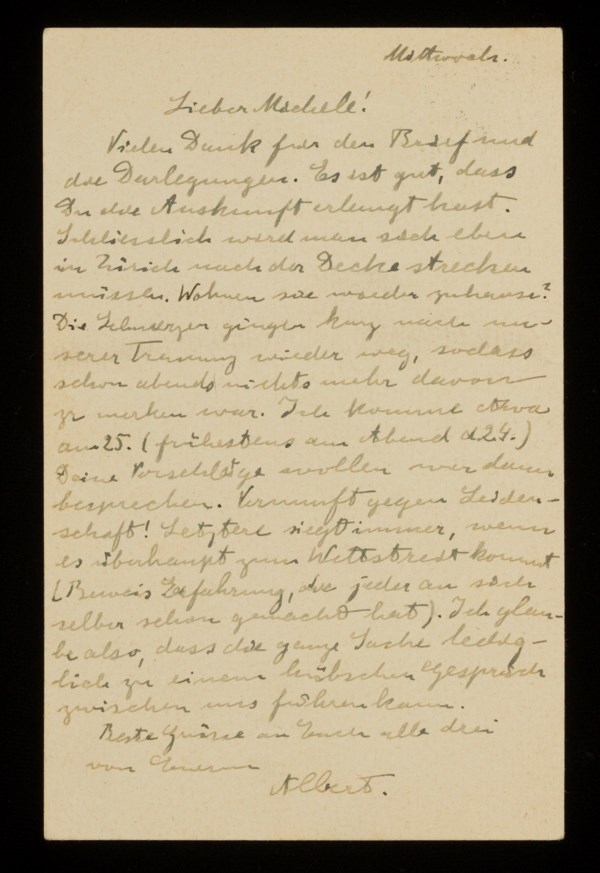 Mittwoch.
Lieber Michele!
Vielen Dank für den Brief und
die Darlegungen. Es ist gut, dass
Du die Auskunft erlangt hast.
Schliesslich wird man sich eben
in Zürich nach der Decke strecken
müssen. Wohnen sie wieder zuhause?
Die Schmerzen gingen kurz nach un-
serer Trennung wieder weg, sodass
schon abends nichts mehr davon
zu merken war. Ich komme etwa
am 25. (frühestens am Abend d 24.)
Deine Vorschläge wollen wir dann
besprechen. Vernunft gegen Leiden-
schaft! Letztere siegt immer, wenn
es überhaupt zum Wettstreit kommt
(Beweis Erfahrung, die jeder an sich
selber schon gemacht hat). Ich glau-
be also, dass die ganze Sache ledig-
lich zu einem hübschen Gespräch
zwischen uns führen kann.
Beste Grüsse an Euch alle drei
von Euerm
Albert.